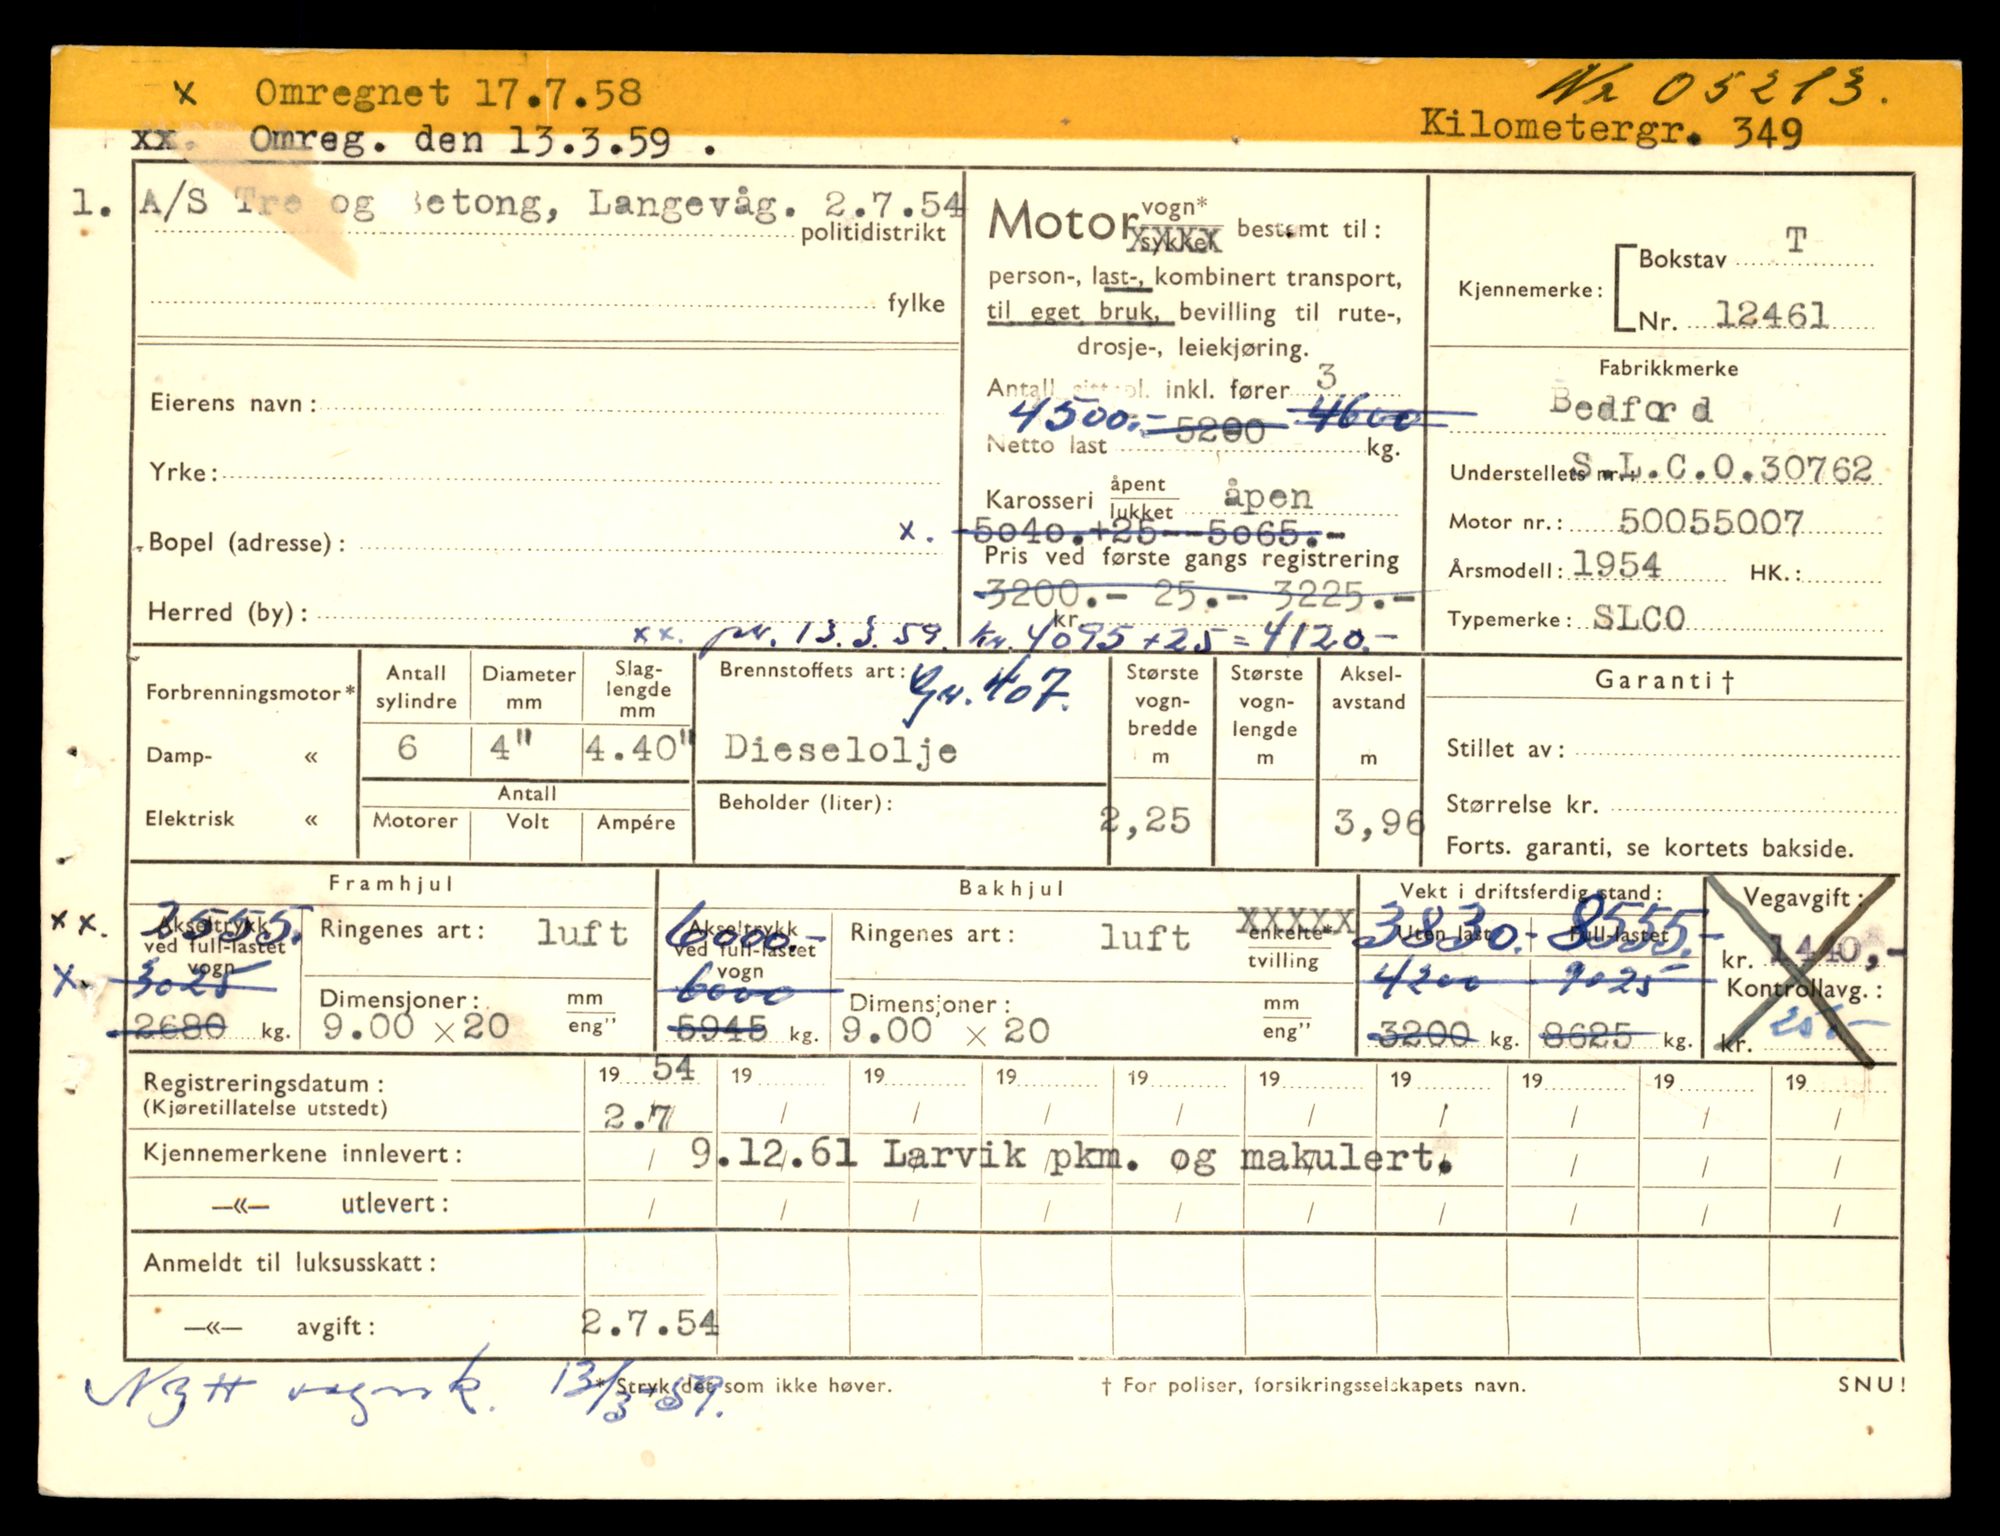 x Omregnet 17.7.58
Nr 05213.
xx. Omreg. den 13.3.59 .
Kilometergr. 349
1. A/S Tre og Betong, Langevåg. 2.7.54
politidistrikt
fylke
Eierens navn:
Yrke:
Bopel (adresse):
Herred (by):
Motor vogn* sykkel bestemt til:
person-, last-, kombinert transport,
til eget bruk, bevilling til rute-,
drosje-, leiekjøring.
Antall sittepl. inkl. fører 3
4500.- 5200 4600
Netto last kg.
Karosseri åpent lukket åpen
x. 5040.+25--5065.-
Pris ved første gangs registrering
3200.- 25.- 3225.-
kr.
xx. pr. 13.3.59. kr. 4095+25=4120.-
Kjennemerke: Bokstav T
Nr. 12461
Fabrikkmerke
Bedford
Understellets nr.: S.L.C.O.30762
Motor nr.: 50055007
Årsmodell: 1954 HK.:
Typemerke: SLCO
Forbrenningsmotor*
Damp- «
Elektrisk «
Antall sylindre
Diameter mm
Slaglengde mm
6 4" 4.40"
Antall
Motorer Volt Ampére
Brennstoffets art: Gr. 407.
Dieselolje
Beholder (liter):
Største vogn-bredde m
Største vogn-lengde m
Aksel-avstand m
2,25 3,96
Garanti †
Stillet av:
Størrelse kr.
Forts. garanti, se kortets bakside.
Framhjul
xx. 2555.
Akseltrykk ved full-lastet vogn
x. 3025
2680 kg.
Ringenes art: luft
Dimensjoner: mm eng"
9.00 x 20
Bakhjul
6000.-
Akseltrykk ved full-lastet vogn
6000
5945 kg.
Ringenes art: luft
XXXXX
enkelte*
tvilling
Dimensjoner: mm eng"
9.00 x 20
Vekt i driftsferdig stand:
3830.- 8555.-
Uten last Full-lastet
4200 9025
3200 kg. 8625 kg.
Vegavgift:
kr. 1440,-
Kontrollavg.:
kr. 25.-
Registreringsdatum: 19 54 19 19 19 19 19 19 19 19 19
(Kjøretillatelse utstedt) 2.7 / / / / / / / / /
Kjennemerkene innlevert: / 9.12.61 Larvik pkm. og makulert. / / /
—«— utlevert: / / / / / / / / / /
Anmeldt til luksusskatt:
—«— avgift: 2.7.54
Nytt vognk. 13/3-59.
* Stryk det som ikke høver.
† For poliser, forsikringsselskapets navn.
SNU!